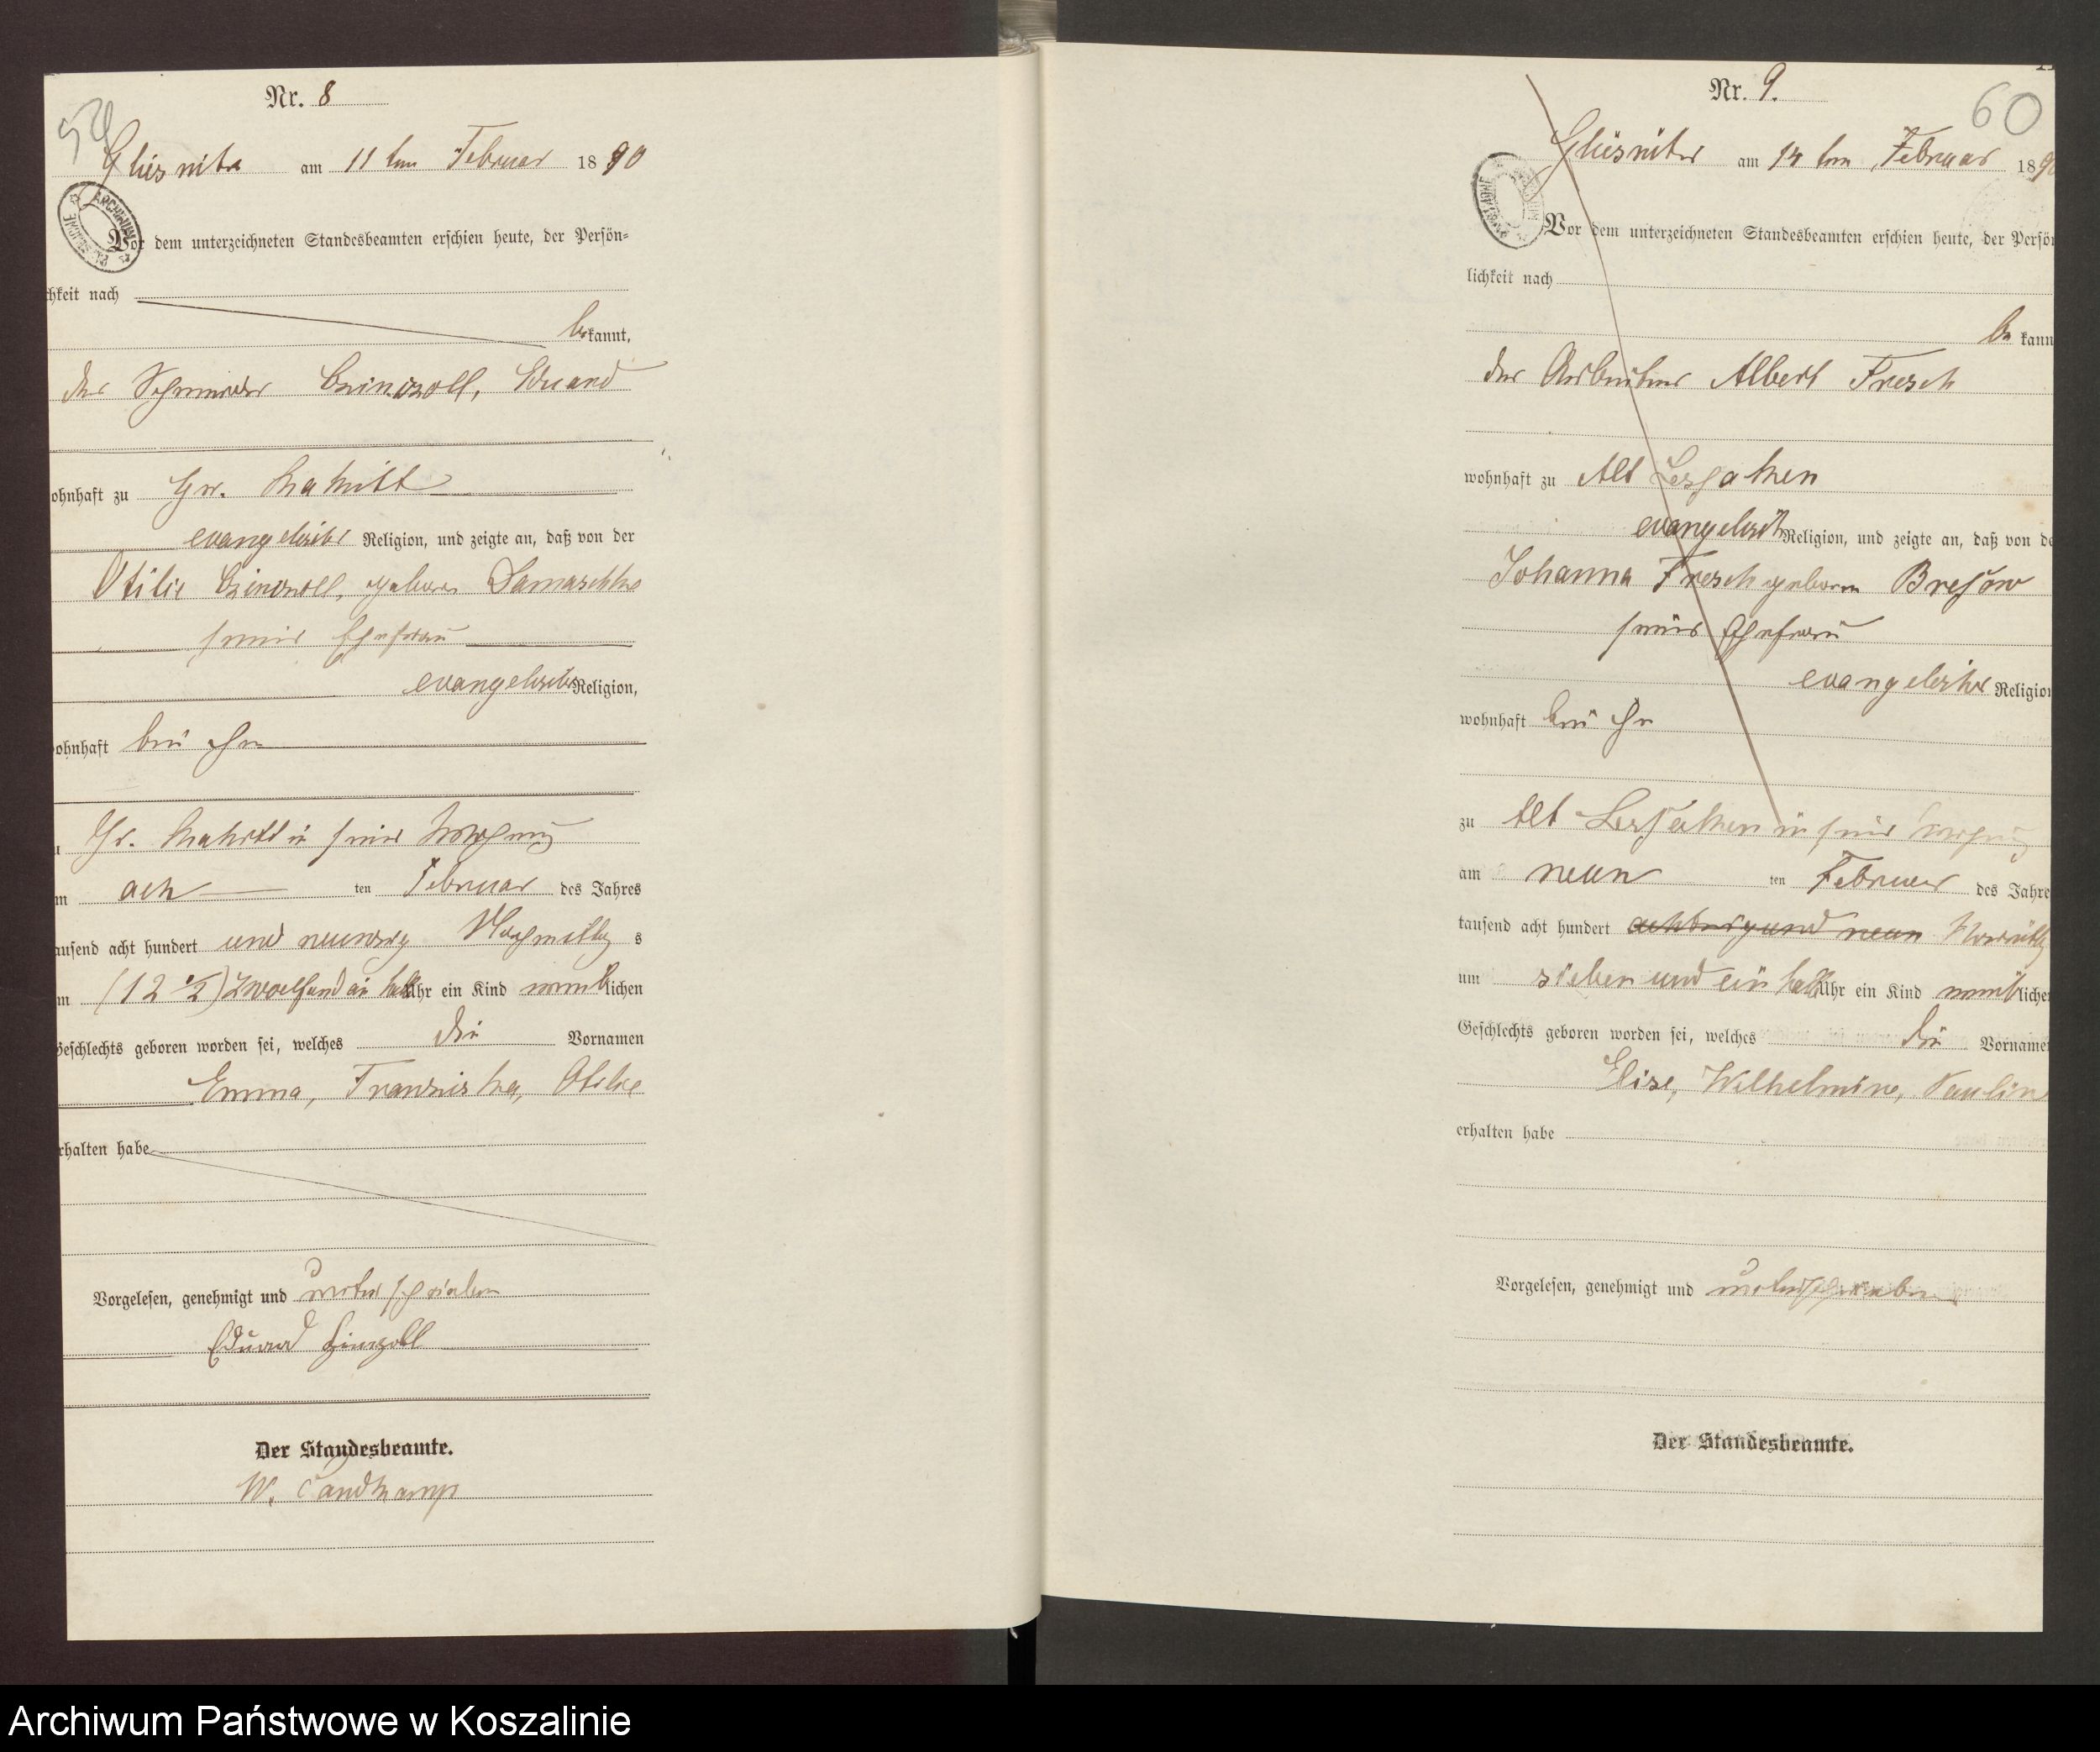 59
Nr. 8
am 11 ten Februar 1890
ARCHIWUM
Vor dem unterzeichneten Standesbeamten erschien heute, der Persön-
chkeit nach
bekannt,
der Eduard
ohnhaft zu Gr.
evangelischer Religion, und zeigte an, daß von der
geboren Damaschke
seiner Ehefrau
evangelischer Religion,
ohnhaft bei ihm
Gr. in seiner Wohnung
ach ten Februar des Jahres
ausend acht hundert und neunzig Nachmittags
(12 1/2) zwoelf und ein halb Uhr ein Kind weiblichen
Geschlechts geboren worden sei, welches die Vornamen
Emma, Franziska,
rhalten habe
Vorgelesen, genehmigt und unterschrieben
Eduard
Der Standesbeamte.
W. Sandkamp
60
Nr. 9.
am 14 ten Februar 1890
Vor dem unterzeichneten Standesbeamten erschien heute, der Persön
lichkeit nach
be kann
der Arbeiter Albert Fresch
wohnhaft zu Alt
evangelisch Religion, und zeigte an, daß von de
Johanna Fresch geboren
seiner Ehefrau
evangelischer Religion
wohnhaft bei ihm
zu Alt in seiner Wohnung
am neun ten Februar des Jahre
tausend acht hundert achtzig und neun
um sieben und ein halb Uhr ein Kind weibliche
Geschlechts geboren worden sei, welches die Vorname
Elise, Wilhelmine, Pauline
erhalten habe
Vorgelesen, genehmigt und unterschrieben
Der Standesbeamte.
Archiwum Państwowe w Koszalinie